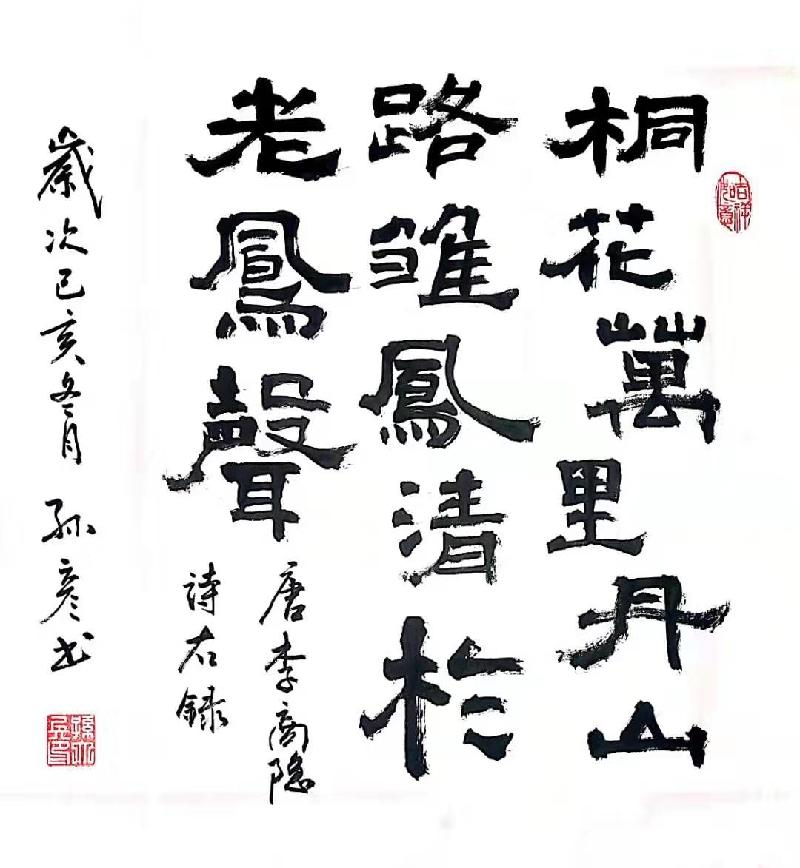 桐花萬里丹山
路雏鳳清於
老鳳聲
唐李商隐
詩右録
歲次己亥冬月 孙彦书